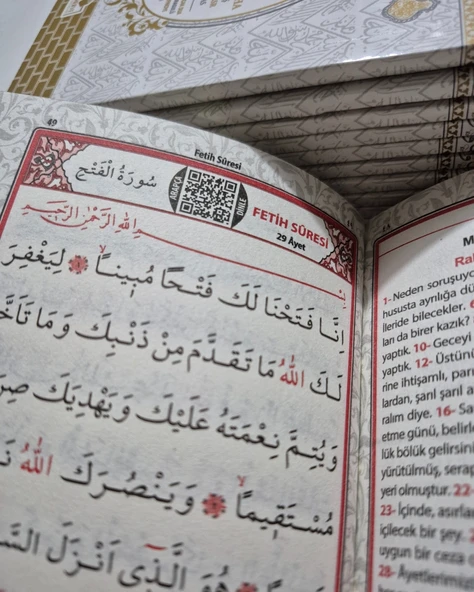 49
Fetih Sûresi
سُورَةُ الْفَتْحِ
ARAPÇA
DİNLE
FETİH SÛRESİ
29 Âyet
بِسْمِ اللهِ الرَّحْمٰنِ الرَّحِيمِ
اِنَّا فَتَحْنَا لَكَ فَتْحًا مُبِينًا ﴿١﴾ لِيَغْفِرَ
لَكَ اللهُ مَا تَقَدَّمَ مِنْ ذَنْبِكَ وَمَا تَاَخَّ
وَيُتِمَّ نِعْمَتَهُ عَلَيْكَ وَيَهْدِيَكَ صِرَ
مُسْتَقِيمًا ﴿٢﴾ وَيَنْصُرَكَ اللهُ نَ
هُوَ الَّذِى اَنْزَلَ السَّ
M
Ra
1- Neden soruşuy
hususta ayrılığa dü
ileride bilecekler. 6
ları da birer kazık?
yaptık. 10- Geceyi
yaptık. 12- Üstünü
rine ihtişamlı, parı
lardan, şarıl şarıl a
ralım diye. 16- Sa
etme günü, belirle
lük bölük gelirsini
yürütülmüş, serap
yeri olmuştur. 22-
23- İçinde, asırlar
içilecek bir şey. 2
uygun bir ceza o
28- Âyetlerimiz